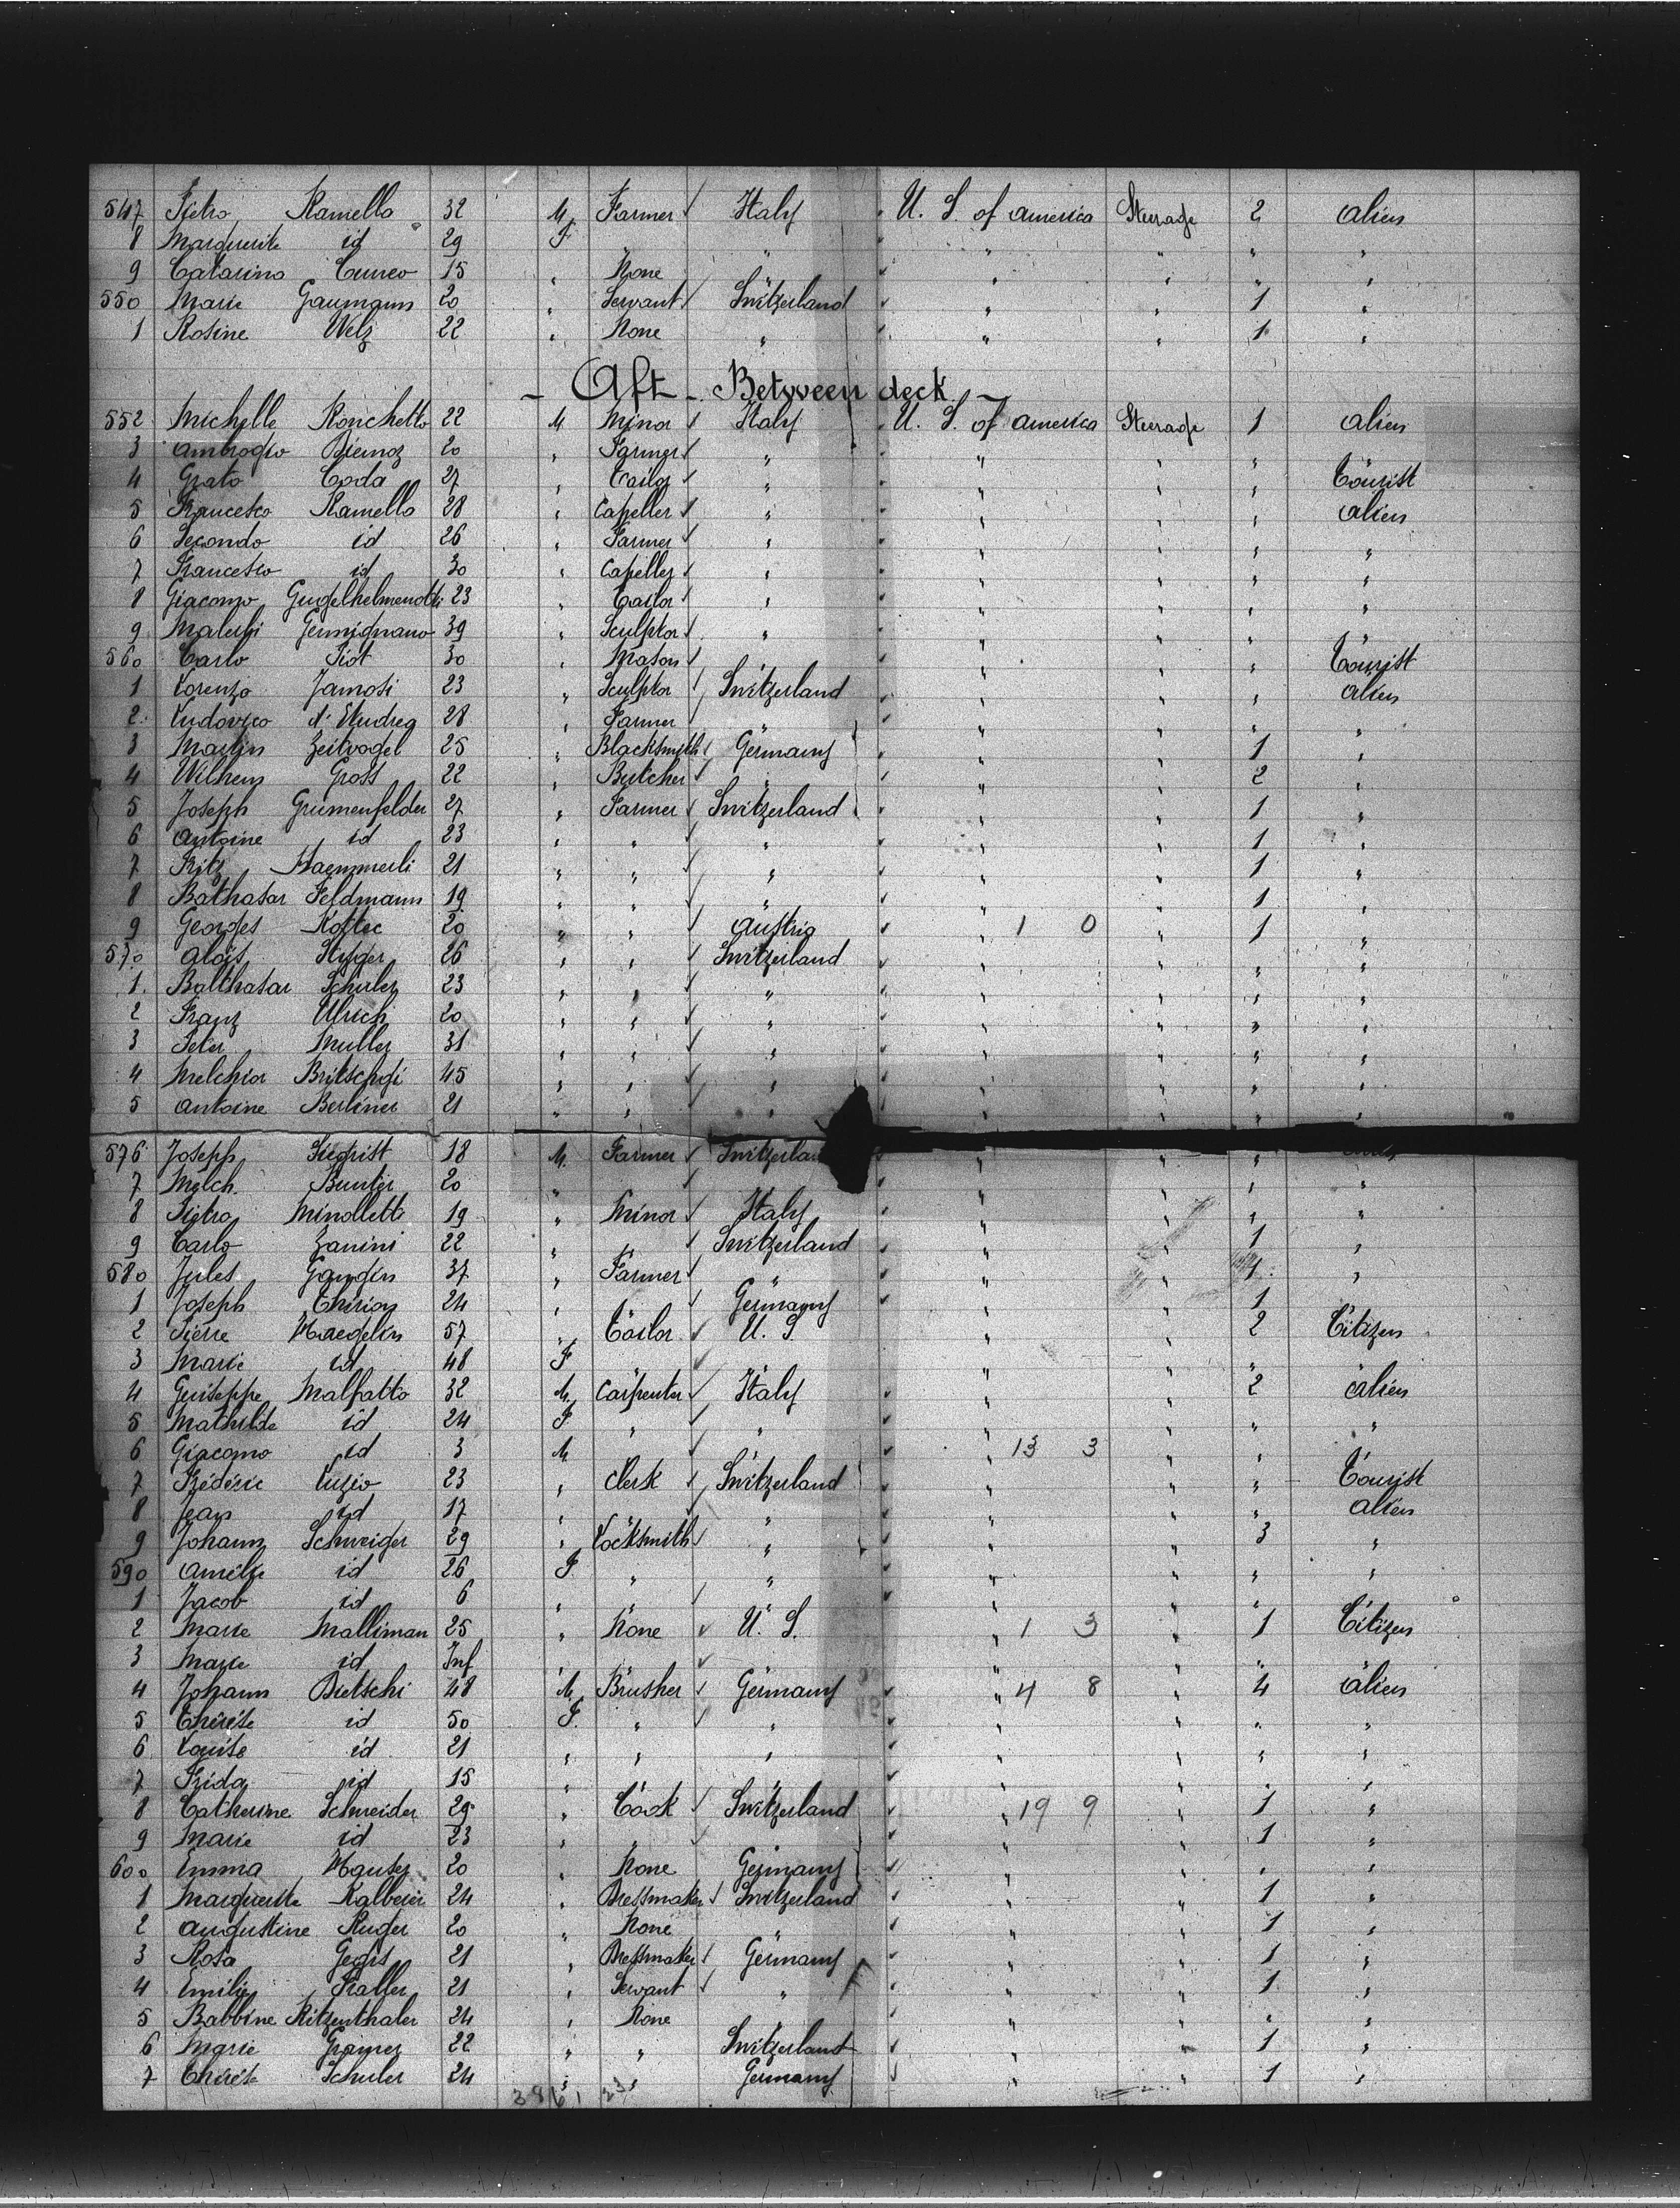 547 Pietro Ramello 32 M Farmer Italy U. S. of america Steerage 2 alien
8 Marguerite id 29 F " " " " " "
9 Catarina Cuneo 15 " None " " " " "
550 Marie Gaumann 20 " Servant Switzerland " " 1 "
1 Rosine Welz 22 " None " " " 1 "
- Aft - Between deck -
552 Michelle Ronchetto 22 M Minor Italy U. S. of america Steerage 1 alien
3 Ambrogio Biemoz 20 " Farmer " " " " "
4 Grato Coda 27 " Tailor " " " " Tourist
5 Francesco Ramello 28 " Capeller " " " " alien
6 Secondo id 26 " Farmer " " " " "
7 Francesco id 30 " Capeller " " " " "
8 Giacomo Gugelhelmenotti 23 " Tailor " " " " "
9 Malchi Germignano 39 " Sculptor " " " " "
560 Carlo Piot 30 " Mason " " " " Tourist
1 Lorenzo Jamosi 23 " Sculptor Switzerland " " " alien
2 Ludovico 28 " Farmer " " " " "
3 Martin Zeitvogel 25 " Blacksmith Germany " " 1 "
4 Wilhem Gross 22 " Butcher " " " 2 "
5 Joseph Grumenfelder 27 " Farmer Switzerland " " 1 "
6 Antoine id 23 " " " " " 1 "
7 Fritz Haemmerli 21 " " " " " 1 "
8 Balthasar Feldmann 19 " " " " " 1 "
9 Georges Kostec 20 " " Austria " 1 0 " 1 "
570 Aloïs Styger 26 " " Switzerland " " " "
1 Balthasar Schuler 23 " " " " " " "
2 Franz Ulrich 20 " " " " " " "
3 Peter Muller 31 " " " " " " "
4 Melchior Britschgi 45 " " " " " " "
5 Antoine Berliner 21 " " " " " " "
576 Joseph Siegrist 18 M. Farmer Switzerland " " "
7 Melch. Bunter 20 " " " " "
8 Pietro Minolletti 19 " Minor Italy " " " "
9 Carlo Zanini 22 " " Switzerland " " 1 "
580 Jules Gandin 37 " Farmer " " " 1 "
1 Joseph Thirion 24 " " Germany " " 1
2 Pierre Haegelin 57 " Tailor U. S " " 2 Citizen
3 Marie id 48 F " " " " " "
4 Guiseppe Malfatto 32 M. Carpenter Italy " " 2 alien
5 Mathilde id 24 F " " " " " "
6 Giacomo id 3 M " 13 3 " " "
7 Frédéric Luzio 23 " Clerk Switzerland " " " Tourist
8 Jean id 17 " " " " " " alien
9 Johann Schweiger 29 " Locksmith " " " 3 "
590 Amélie id 26 F " " " " " "
1 Jacob id 6 " " " " " "
2 Marie Malliman 25 " None U. S. " 1 3 " 1 Citizen
3 Marie id Inf " " " " " "
4 Johann Bietschi 48 M. Brusher Germany " 4 8 " 4 alien
5 Thérése id 50 F. " " " " " "
6 Louise id 21 " " " " " " "
7 Frida id 15 " " " " " " "
8 Catherine Schneider 29 " Cook Switzerland " 19 9 " 1 "
9 Marie id 23 " " " " " 1 "
600 Emma Hauser 20 " None Germany " " " "
1 Marguerite Kalberer 24 " Dressmaker Switzerland " " 1 "
2 Augustine Ruger 20 " None " " " 1 "
3 Rosa 21 " Dressmaker Germany " " 1 "
4 Emilie 21 " Servant " " " 1 "
5 Babbine Ritzenthaler 24 " None " " " "
6 Marie Gramer 22 " " Switzerland " " 1 "
7 Thérése Schuler 24 " " Germany " " 1 "